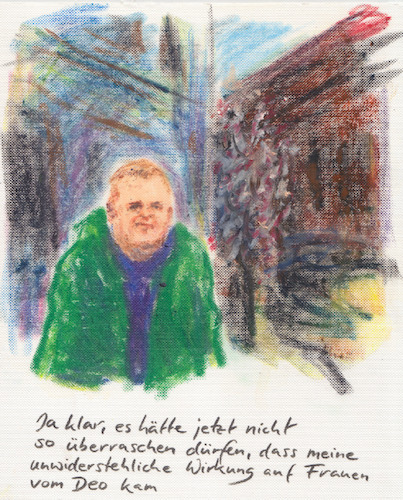 Ja klar, es hätte jetzt nicht
so überraschen dürfen, dass meine
unwiderstehliche Wirkung auf Frauen
vom Deo kam